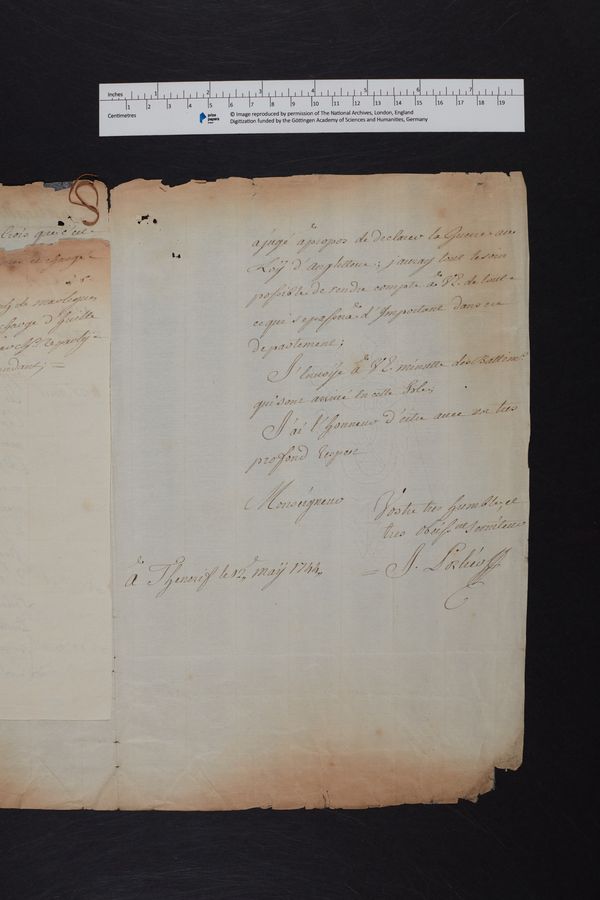 Inches 1 2 3 4 5 6 7
1 2 3 4 5 6 7 8 9 10 11 12 13 14 15 16 17 18 19
Centimetres
prize papers
© Image reproduced by permission of The National Archives, London, England
Digitization funded by the Göttingen Academy of Sciences and Humanities, Germany
crois que c'est
de
charge d'huille
ajugé apropos de declarer la Guerre au
Roÿ d'angleterre; j'auray tout le soin
possible de rendre compte à V.E. de tout
ce qui se passera d'Important dans ce
departement;
J'envoÿe à V.E. minutte des Battim.ts
qui sont arrivé en cette Isle;
J'ai l'honneur d'estre avec un tres
profond respect
Monseigneur
Vostre tres humble, et
tres obeiss.nt serviteur
à Thenerif le 12 maÿ 1744.